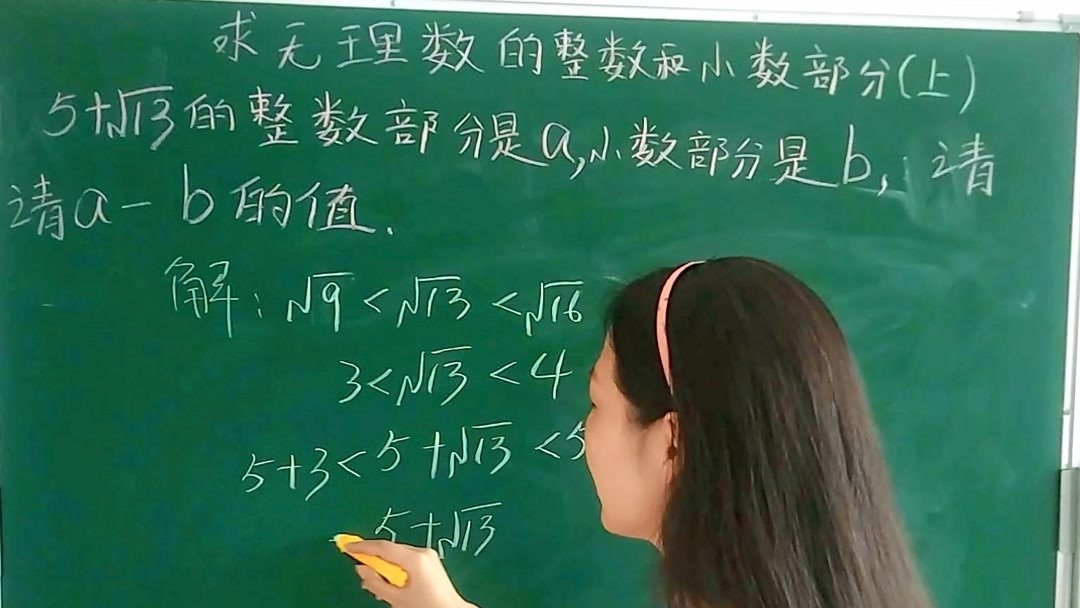 求无理数的整数和小数部分(上)
5+√13的整数部分是a,小数部分是b,请
请a-b的值.
解:√9<√13<√16
3<√13<4
5+3<5+√13<5
5+√13